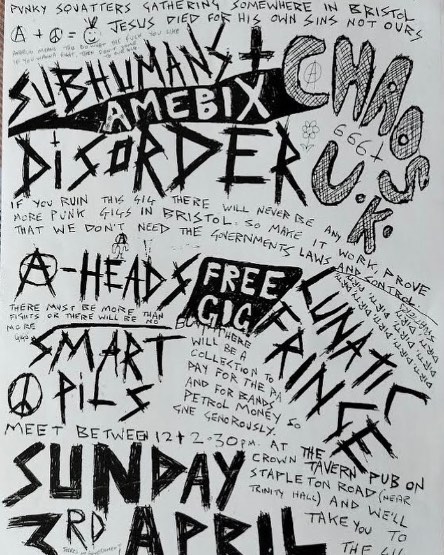 PUNKY SQUATTERS GATHERING SOMEWHERE IN BRISTOL
JESUS DIED FOR HIS OWN SINS NOT OURS
A + =
SUBHUMANS +
AMEBIX
DISORDER
CHAOS
U.K.
666+
IF YOU RUIN THIS GIG THERE WILL NEVER BE ANY
MORE PUNK GIGS IN BRISTOL. SO MAKE IT WORK, PROVE
THAT WE DON'T NEED THE GOVERNMENTS LAWS AND CONTROL.
A-HEADS
FREE
GIG
LUNATIC
FRINGE
THERE MUST BE MORE THAN
FIGHTS OR THERE WILL BE NO
MORE GIGS
BUT THERE
WILL BE A
COLLECTION TO
PAY FOR THE PA
AND FOR BANDS
PETROL MONEY SO
GIVE GENOROUSLY.
SMART
PILS
MEET BETWEEN 12+2-30PM. AT THE
CROWN TAVERN PUB ON
STAPLETON ROAD (NEAR
TRINITY HALL) AND WE'LL
TAKE YOU TO
THE GIG
SUNDAY
3RD APRIL